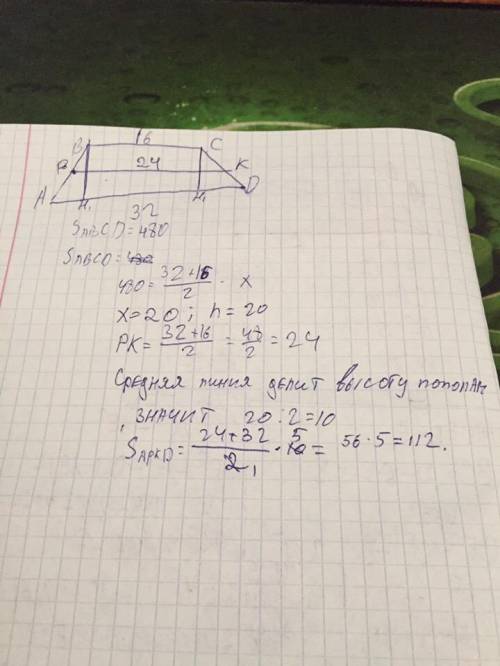 16
B C
P 24 K
A H₁ H₁ D
32
SABCD = 480
SABCD = 480
480 = 32+16/2 · x
x = 20 ; h = 20
PK = 32+16/2 = 48/2 = 24
Средняя линия делит высоту пополам
, значит 20 : 2 = 10
SAPKD = 24+32/2 1 · 10 5 = 56 · 5 = 112.